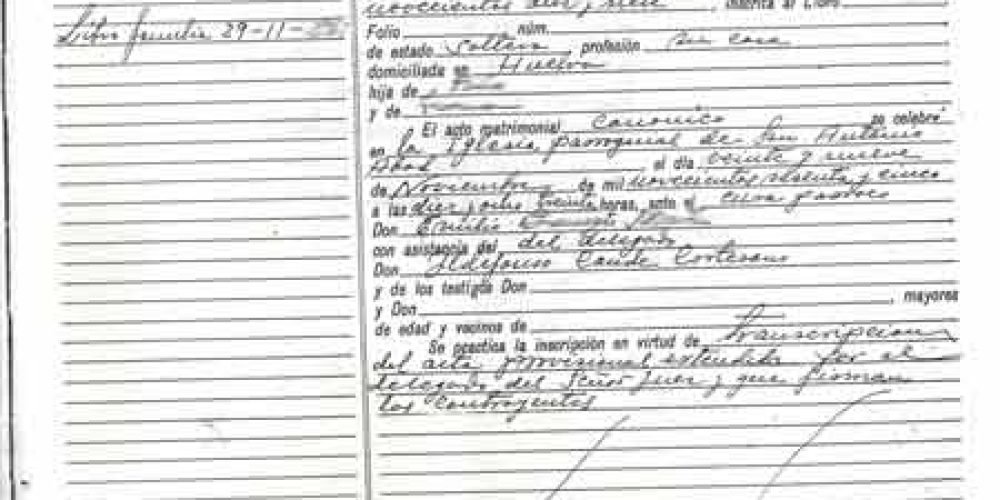 Libro familia 29-11-
novecientos diez y siete, inscrita al Libro
Folio núm.
de estado soltera, profesión su casa
domiciliada en Huelva
hija de
y de
El acto matrimonial canonico se celebró
en la Iglesia parroquial de San Antonio
Abad el día veinte y nueve
de Noviembre de mil novecientos sesenta y cinco
a las diez y ocho treinta horas, ante el cura parroco
Don Emilio
con asistencia del del delegado
Don Ildefonso Conde Cortesano
y de los testigos Don
y Don , mayores
de edad y vecinos de
Se practica la inscripción en virtud de transcripcion
del acta provisional extendida por el
delegado del Señor Juez y que firman
los contrayentes